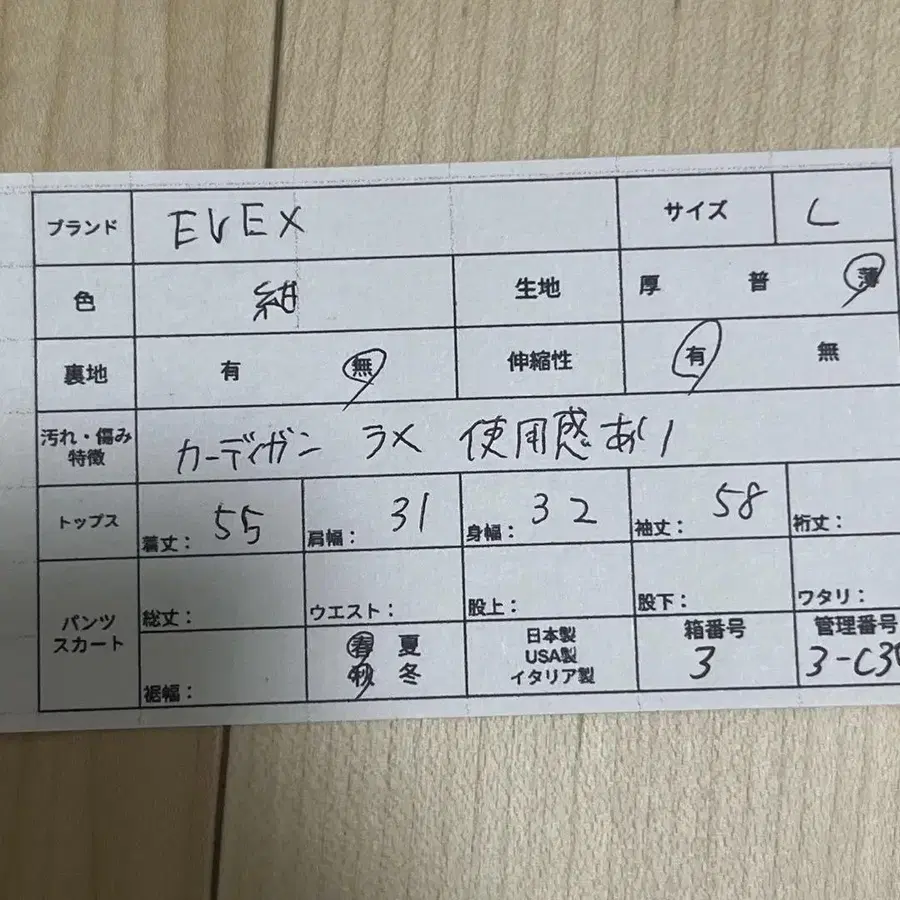 ブランド EVEX サイズ L
色 紺 生地 厚 普 薄
裏地 有 無 伸縮性 有 無
汚れ・傷み
特徴 カーディガン ラメ 使用感あり
トップス 着丈: 55 肩幅: 31 身幅: 32 袖丈: 58 裄丈:
パンツ
スカート
総丈: ウエスト: 股上: 股下: ワタリ:
裾幅:
春 夏
秋 冬
日本製
USA製
イタリア製
箱番号
3
管理番号
3-C3